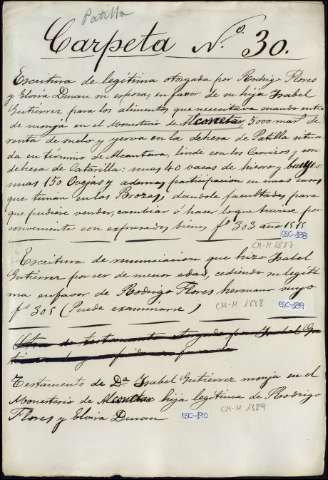 Patilla
Carpeta Nº. 30.
Escritura de legitima otorgada por Rodrigo Flores
y Elvira Duran su esposa en favor de su hija Isabel
Gutierrez para los alimentos que necesita cuando entre
de monja en el Monasterio de 3000 mar.s de
renta de suelo y yerva en la dehesa de Patilla situa
da en termino de Alcantara, linde con los Corvicos y con
dehesa de Catarilla: mas 40 vacas de hierro y
mas 150 Ovejas y ademas participacion en unas casas
que tenian en las Brozas, dandole facultades para
que pudiese vender, cambiar ó hacer lo que tuviese por
conveniente con espresados bienes fº 303 año
CM-M 1888
Escritura de renunciacion que hizo Isabel
Gutierrez por ser de menor edad, cediendo su legiti
ma en favor de Rodrigo Flores hermano suyo
fº 305 (Puede examinarse) CM-M 1888
Testamento de Dª Isabel Gutierrez monja en el
Monasterio de hija legitima de Rodrigo
Flores y Elvira Duran CM-M 1889